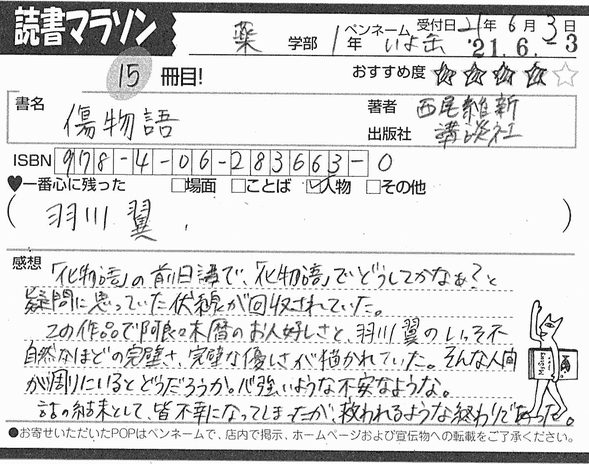 読書マラソン
薬 学部 1年 ペンネーム いよ缶 受付日 21年6月3日
'21.6.-3
15 冊目! おすすめ度 ★★★★☆
書名 傷物語 著者 西尾維新
出版社 講談社
ISBN 978-4-06-283663-0
♥一番心に残った □場面 □ことば ☑人物 □その他
( 羽川翼. )
感想 「化物語」の前日譚で、「化物語」でどうしてかなぁ?と
疑問に思っていた伏線が回収されていた。
この作品で阿良々木暦のお人好しさと、羽川翼のいっそ不
自然なほどの完璧さ、完璧な優しさが描かれていた。そんな人間
が周りにいるとどうだろうか。心強いような不安なような。
話の結末として、皆不幸になってしまったが、救われるような終わりであった。
●お寄せいただいたPOPはペンネームで、店内で掲示、ホームページおよび宣伝物への転載をご了承ください。